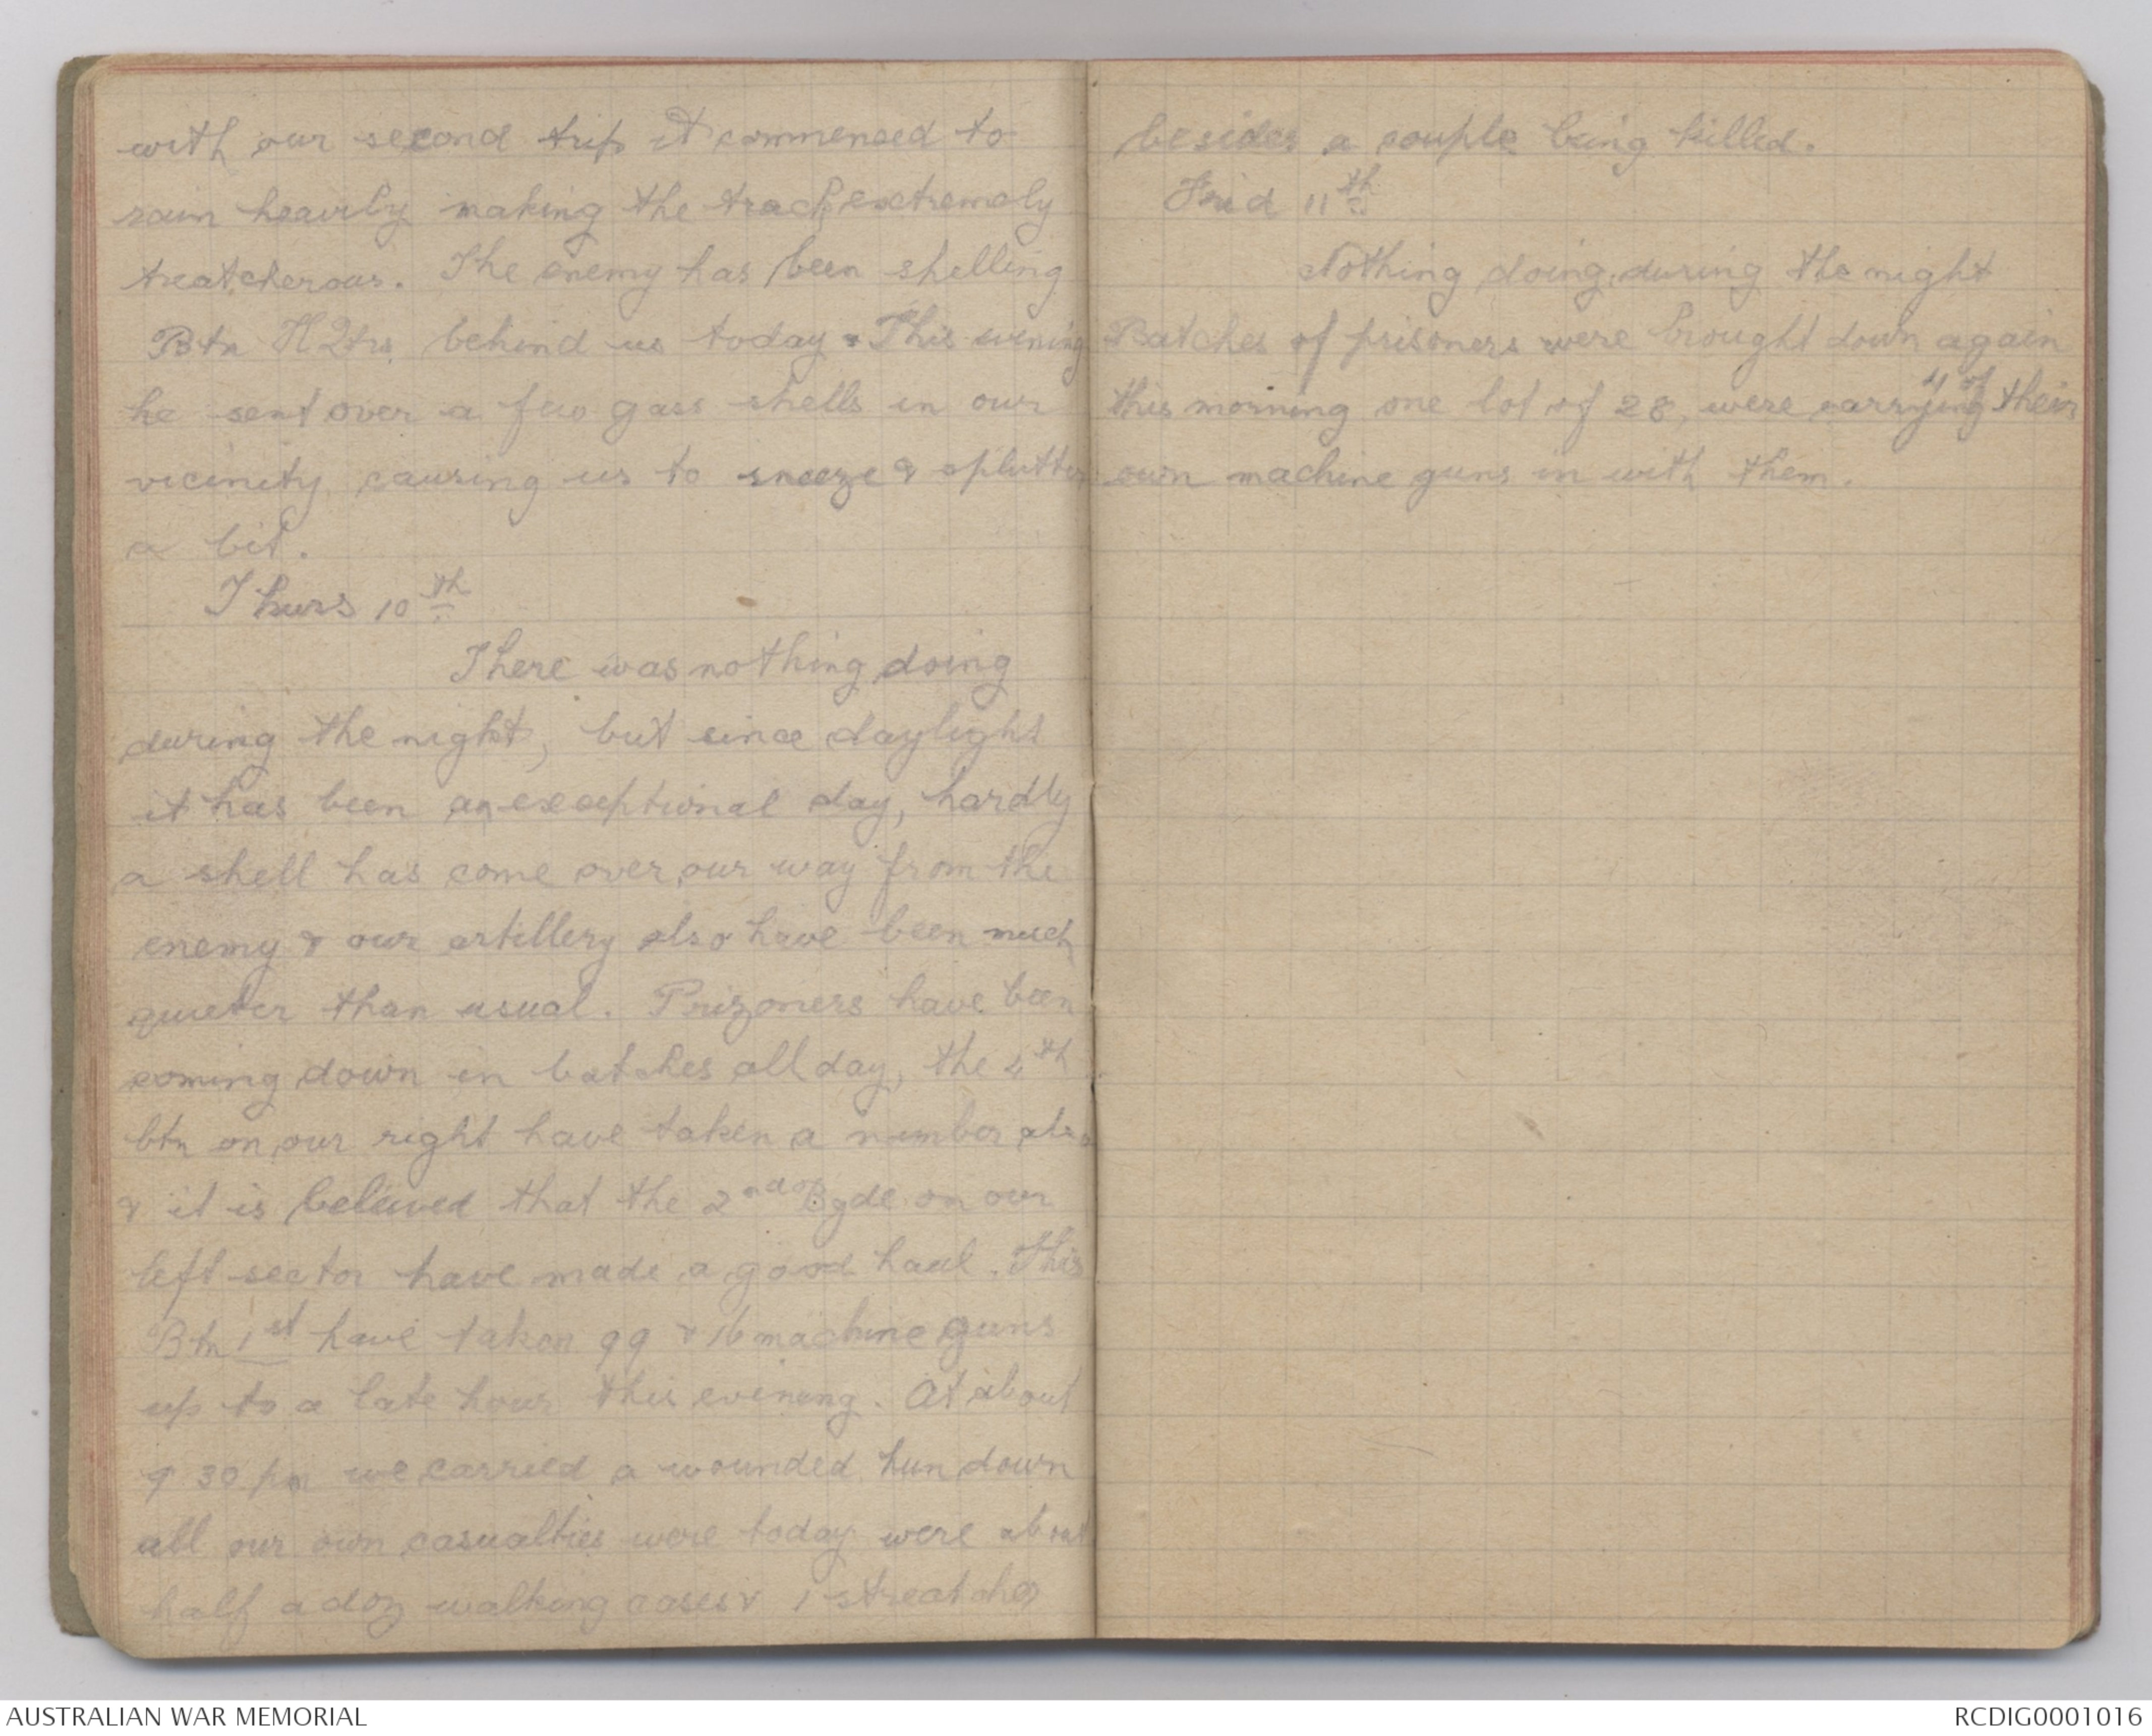 with our second trip it commenced to
rain heavily making the track extremely
treatcherous. The enemy has been shelling
Btn H Qtrs behind us today. This evening
he sent over a few gass shells in our
vicinity causing us to sneeze & splutter
a bit.
Thurs 10th
There was nothing doing
during the night, but since daylight
it has been an exceptional day, hardly
a shell has come over our way from the
enemy & our artillery also have been much
quieter than usual. Prizoners have been
coming down in batches all day, the 4th
btn on our right have taken a number also
& it is beleived that the 2nd Bgde on our
left sector have made a good haul. This
Btn 1st have taken 99 & 16 machine guns
up to a late hour this evening. At about
9 30 pm we carried a wounded hun down
all our own casualties were today were about
half a doz walking cases & 1 streatcher
besides a couple being killed.
Frid 11th
Nothing doing during the night
Batches of prisoners were brought down again
this morning one lot of 28, were carrying 4 of their
own machine guns in with them.
AUSTRALIAN WAR MEMORIAL
RCDIG0001016